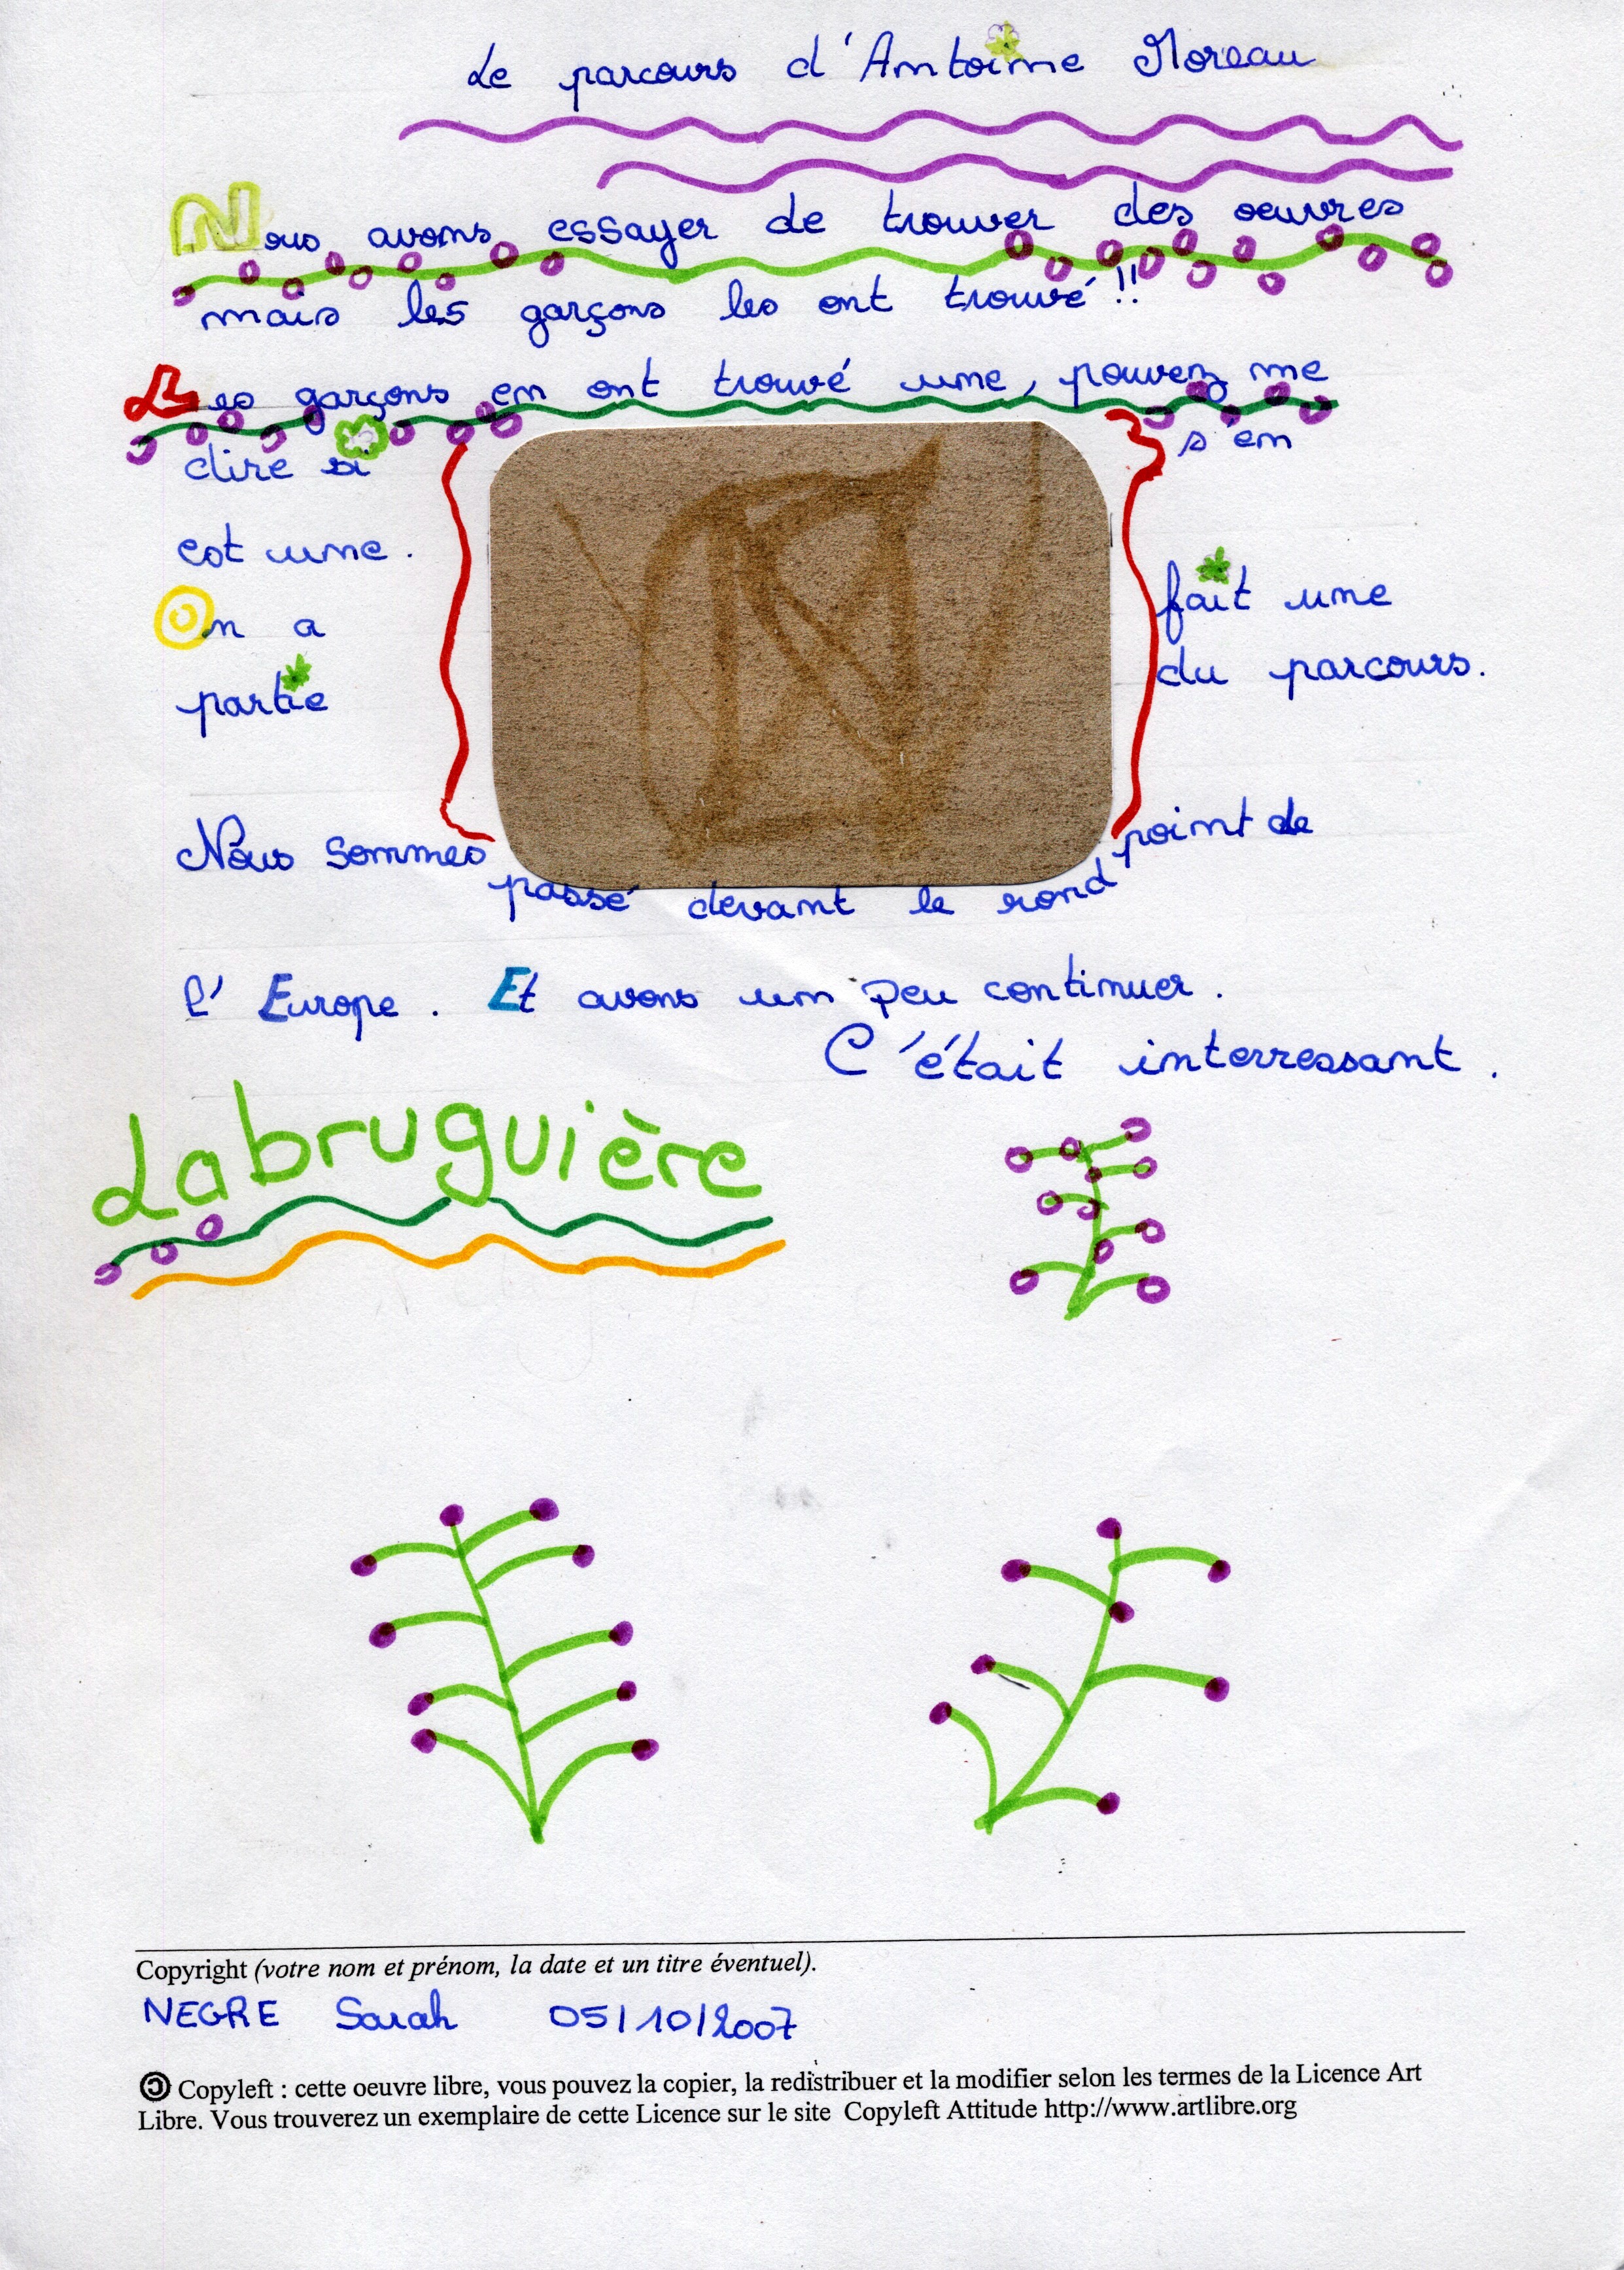 Le parcours d'Antoine Moreau
Nous avons essayer de trouver des oeuvres
mais les garçons les ont trouvé !!
Les garçons en ont trouvé une, pouvez me
dire si s'en
est une.
On a fait une
partie du parcours.
Nous sommes passé devant le rond point de
l'Europe. Et avons un peu continuer.
C'était interressant.
Labruguière
Copyright (votre nom et prénom, la date et un titre éventuel).
NEGRE Sarah 05/10/2007
Copyleft : cette oeuvre libre, vous pouvez la copier, la redistribuer et la modifier selon les termes de la Licence Art
Libre. Vous trouverez un exemplaire de cette Licence sur le site Copyleft Attitude http://www.artlibre.org